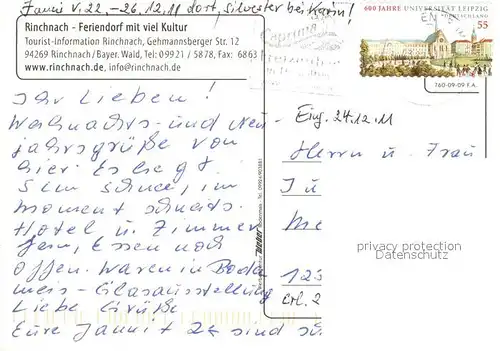 Janni v. 22. - 26. 12. 11 dort, Silvester bei Karin!
Rinchnach - Feriendorf mit viel Kultur
Tourist-Information Rinchnach, Gehmannsberger Str. 12
94269 Rinchnach/Bayer. Wald, Tel: 09921 / 5878, Fax: 6863
www.rinchnach.de, info@rinchnach.de
600 JAHRE UNIVERSITÄT LEIPZIG
DEUTSCHLAND
55
760-09-09 F.A.
Ihr Lieben!
Weihnachts- und Neu-
jahrsgrüße von
hier. Es liegt
5 cm Schnee, im
Moment schneits.
Hotel u. Zimmer
fein, Essen noch
offen. Waren in Boden
mais - Glasausstellung
Liebe Grüße
Eure Janni +
sind
Eing. 24.12.11
Herrn u. Frau
Ju
Me
123
privacy protection
Datenschutz